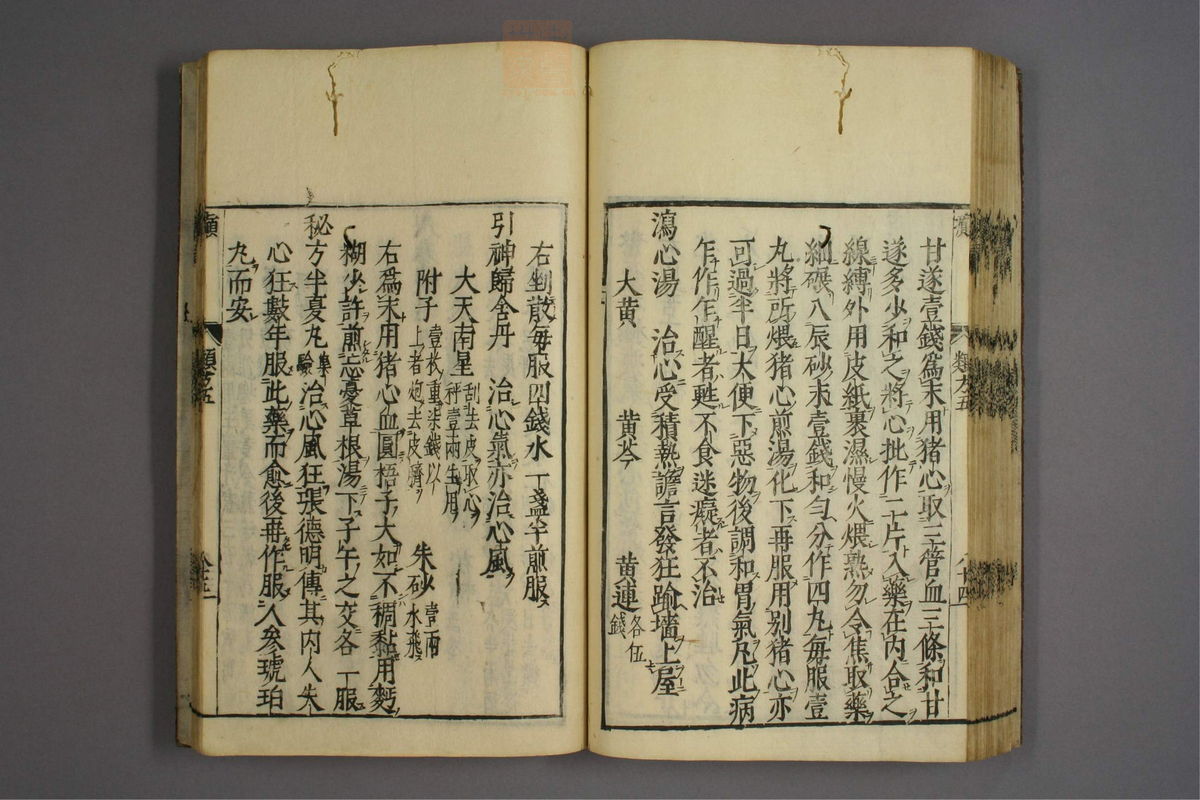 甘遂壹錢爲末用猪心取三管血三條和甘
遂多少和之將心批作二片入藥在内合之
線縛外用皮紙裹濕慢火煨熟勿令焦取藥
細碾入辰砂末壹錢和勻分作四丸毎服壹
丸將所煨猪心煎湯化下再服用別猪心亦
可過半日大便下惡物後調和胃氣凡此病
乍作乍醒者甦不食迷癡者不治
瀉心湯　治心受積熱譫言發狂踰墻上屋
大黄　黄芩　黄連各伍錢
右剉散毎服四錢水一盞半煎服
引神歸舍丹　治心氣亦治心風
大天南星刮去皮取心秤壹兩生用　朱砂壹兩水飛
附子壹枚重柒錢以上者炮去皮臍
右爲末用猪心血圓梧子大如不稠黏用麪
糊少許煎忘憂草根湯下子午之交各一服
秘方半夏丸集驗治心風狂張德明傳其内人失
心狂數年服此藥而愈後再作服人參琥珀
丸而安
類方五